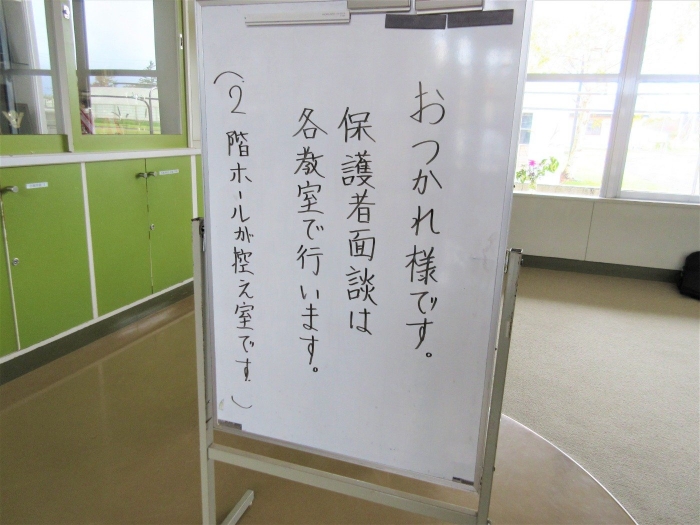 おつかれ様です。
保護者面談は
各教室で行います。
(2階ホールが控え室です)